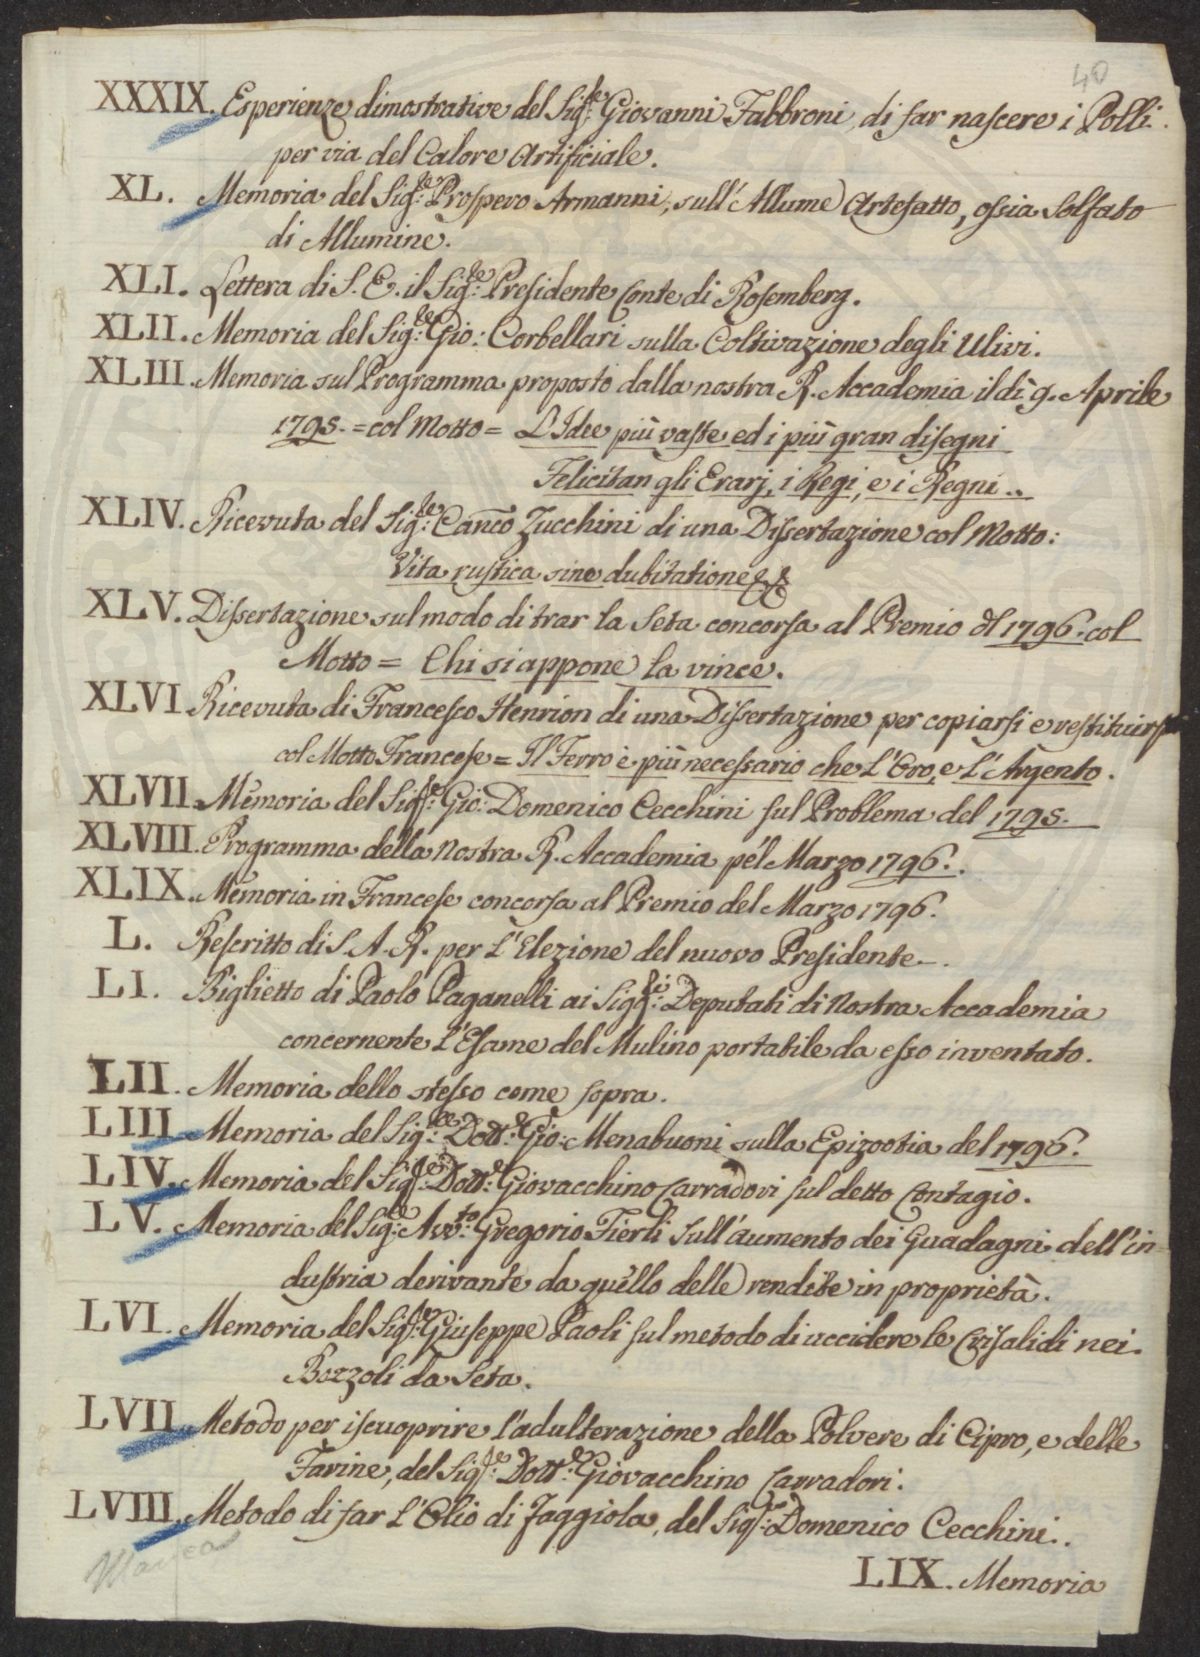 40
XXXIX. Esperienze dimostrative del Sig.re Giovanni Fabbroni, di far nascere i Polli
per via del Calore Artificiale.
XL. Memoria del Sig.re Prospero Armanni, sull'Allume Artefatto, ossia Solfato
di Allumine.
XLI. Lettera di S. E. il Sig.re Presidente Conte di Rosemberg.
XLII. Memoria del Sig.re Gio: Corbellari sulla Coltivazione degli Ulivi.
XLIII. Memoria sul Programma proposto dalla nostra R. Accademia il dì 9. Aprile
1795. = col Motto = L'Idee più vaste ed i più gran disegni
Felicitan gli Erarj, i Regi, e i Regni..
XLIV. Ricevuta del Sig.re Canco Zucchini di una Dissertazione col Motto:
Vita rustica sine dubitatione &
XLV. Dissertazione sul modo di trar la Seta concorsa al Premio dl 1796. col
Motto = Chi si appone la vince.
XLVI Ricevuta di Francesco Henrion di una Dissertazione per copiarsi e restituirsi
col Motto Francese = Il Ferro è più necessario che L'Oro, e L'Argento.
XLVII. Memoria del Sig.re Gio: Domenico Cecchini sul Problema del 1795.
XLVIII. Programma della Nostra R. Accademia pel Marzo 1796.
XLIX. Memoria in Francese concorsa al Premio del Marzo 1796.
L. Rescritto di S. A. R. per L'Elezione del nuovo Presidente.
LI. Biglietto di Paolo Paganelli ai Sigg.ri Deputati di Nostra Accademia
concernente L'Esame del Mulino portabile da esso inventato.
LII. Memoria dello stesso come sopra.
LIII. Memoria del Sig.re Dott.e Gio: Menabuoni sulla Epizootia del 1796.
LIV. Memoria del Sig.re Dott.e Giovacchino Carradori sul detto Contagio.
LV. Memoria del Sig.e Avv.to Gregorio Fierli sull'aumento dei Guadagni dell'in-
dustria derivante da quello delle rendite in proprietà.
LVI. Memoria del Sig.re Giuseppe Paoli sul metodo di uccidere le Crisalidi nei
Bozzoli da Seta.
LVII. Metodo per iscuoprire l'adulterazione della Polvere di Cipro, e delle
Farine, del Sig.re Dott.e Giovacchino Carradori.
LVIII. Metodo di far L'Olio di Faggiola, del Sig.re Domenico Cecchini.
Manca
LIX. Memoria